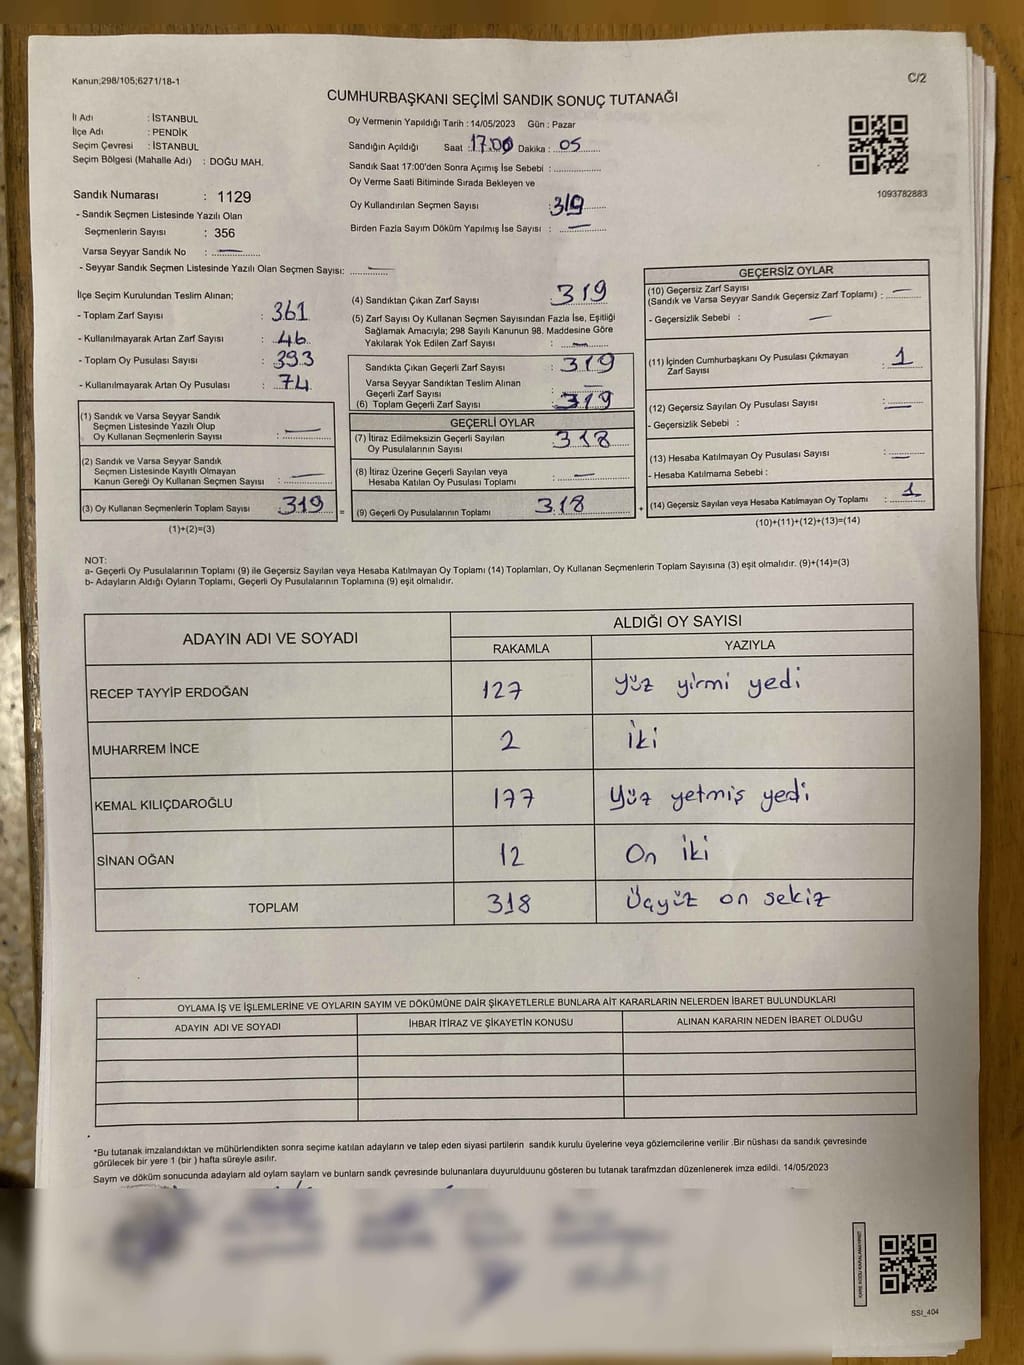 Kanun;298/105;6271/18-1
C/2
CUMHURBAŞKANI SEÇİMİ SANDIK SONUÇ TUTANAĞI
İl Adı : İSTANBUL
İlçe Adı : PENDİK
Seçim Çevresi : İSTANBUL
Seçim Bölgesi (Mahalle Adı) : DOĞU MAH.
Sandık Numarası : 1129
- Sandık Seçmen Listesinde Yazılı Olan
Seçmenlerin Sayısı : 356
Varsa Seyyar Sandık No : —
- Seyyar Sandık Seçmen Listesinde Yazılı Olan Seçmen Sayısı: —
Oy Vermenin Yapıldığı Tarih : 14/05/2023 Gün : Pazar
Sandığın Açıldığı Saat : 17.00 Dakika : 05
Sandık Saat 17:00'den Sonra Açımış İse Sebebi :
Oy Verme Saati Bitiminde Sırada Bekleyen ve
Oy Kullandırılan Seçmen Sayısı : 319
Birden Fazla Sayım Döküm Yapılmış İse Sayısı : —
1093782883
İlçe Seçim Kurulundan Teslim Alınan;
- Toplam Zarf Sayısı : 361
- Kullanılmayarak Artan Zarf Sayısı : 46
- Toplam Oy Pusulası Sayısı : 393
- Kullanılmayarak Artan Oy Pusulası : 74
(1) Sandık ve Varsa Seyyar Sandık
Seçmen Listesinde Yazılı Olup
Oy Kullanan Seçmenlerin Sayısı : —
(2) Sandık ve Varsa Seyyar Sandık
Seçmen Listesinde Kayıtlı Olmayan
Kanun Gereği Oy Kullanan Seçmen Sayısı : —
(3) Oy Kullanan Seçmenlerin Toplam Sayısı : 319 =
(1)+(2)=(3)
(4) Sandıktan Çıkan Zarf Sayısı : 319
(5) Zarf Sayısı Oy Kullanan Seçmen Sayısından Fazla İse, Eşitliği
Sağlamak Amacıyla; 298 Sayılı Kanunun 98. Maddesine Göre
Yakılarak Yok Edilen Zarf Sayısı : —
Sandıkta Çıkan Geçerli Zarf Sayısı : 319
Varsa Seyyar Sandıktan Teslim Alınan
Geçerli Zarf Sayısı : —
(6) Toplam Geçerli Zarf Sayısı : 319
GEÇERLİ OYLAR
(7) İtiraz Edilmeksizin Geçerli Sayılan
Oy Pusulalarının Sayısı : 318
(8) İtiraz Üzerine Geçerli Sayılan veya
Hesaba Katılan Oy Pusulası Toplamı : —
(9) Geçerli Oy Pusulalarının Toplamı : 318 +
GEÇERSİZ OYLAR
(10) Geçersiz Zarf Sayısı
(Sandık ve Varsa Seyyar Sandık Geçersiz Zarf Toplamı) : —
- Geçersizlik Sebebi : —
(11) İçinden Cumhurbaşkanı Oy Pusulası Çıkmayan
Zarf Sayısı : 1
(12) Geçersiz Sayılan Oy Pusulası Sayısı : —
- Geçersizlik Sebebi :
(13) Hesaba Katılmayan Oy Pusulası Sayısı : —
- Hesaba Katılmama Sebebi :
(14) Geçersiz Sayılan veya Hesaba Katılmayan Oy Toplamı : 1
(10)+(11)+(12)+(13)=(14)
NOT:
a- Geçerli Oy Pusulalarının Toplamı (9) ile Geçersiz Sayılan veya Hesaba Katılmayan Oy Toplamı (14) Toplamları, Oy Kullanan Seçmenlerin Toplam Sayısına (3) eşit olmalıdır. (9)+(14)=(3)
b- Adayların Aldığı Oyların Toplamı, Geçerli Oy Pusulalarının Toplamına (9) eşit olmalıdır.
ADAYIN ADI VE SOYADI
ALDIĞI OY SAYISI
RAKAMLA YAZIYLA
RECEP TAYYİP ERDOĞAN 127 Yüz yirmi yedi
MUHARREM İNCE 2 İki
KEMAL KILIÇDAROĞLU 177 Yüz yetmiş yedi
SİNAN OĞAN 12 On iki
TOPLAM 318 Üçyüz on sekiz
OYLAMA İŞ VE İŞLEMLERİNE VE OYLARIN SAYIM VE DÖKÜMÜNE DAİR ŞİKAYETLERLE BUNLARA AİT KARARLARIN NELERDEN İBARET BULUNDUKLARI
ADAYIN ADI VE SOYADI İHBAR İTİRAZ VE ŞİKAYETİN KONUSU ALINAN KARARIN NEDEN İBARET OLDUĞU
*Bu tutanak imzalandıktan ve mühürlendikten sonra seçime katılan adayların ve talep eden siyasi partilerin sandık kurulu üyelerine veya gözlemcilerine verilir .Bir nüshası da sandık çevresinde
görülecek bir yere 1 (bir ) hafta süreyle asılır.
Saym ve döküm sonucunda adaylarn ald oylarn saylarn ve bunlarn sandk çevresinde bulunanlara duyurulduunu gösteren bu tutanak tarafmzdan düzenlenerek imza edildi. 14/05/2023
KARE KODU KARALAMAYINIZ!
SSI_404